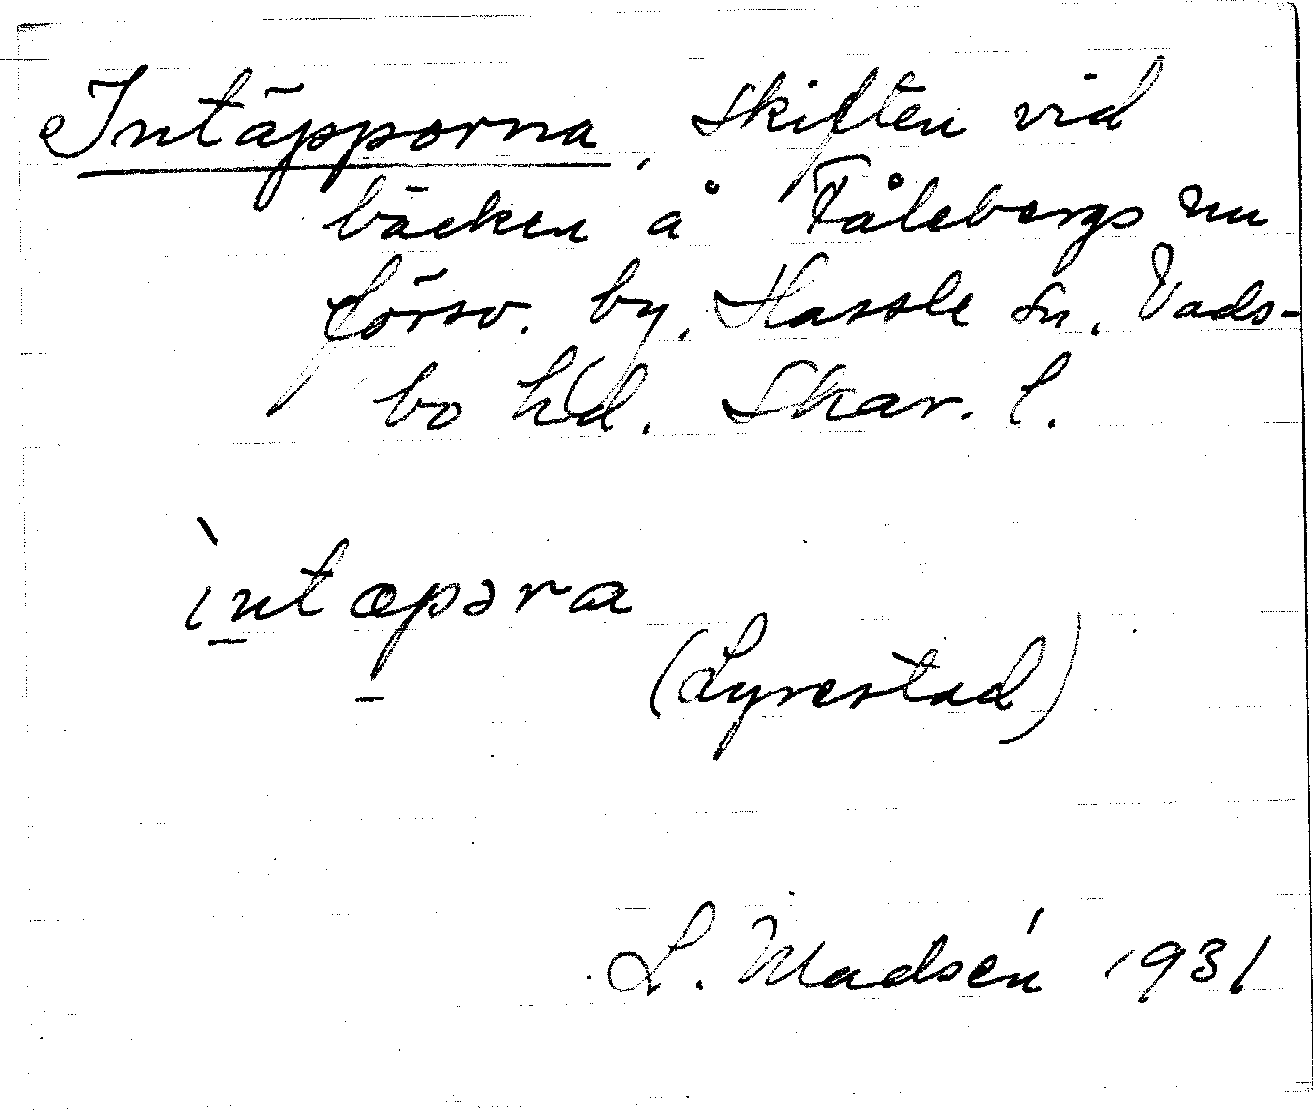 Intäpporna, skiften vid
bäcken å Fålebergs nu
försv. by. Hassle sn. Vads-
bo hd. Skar. l.
ìntæpəra
(Lyrestad)
L. Madsén 1931